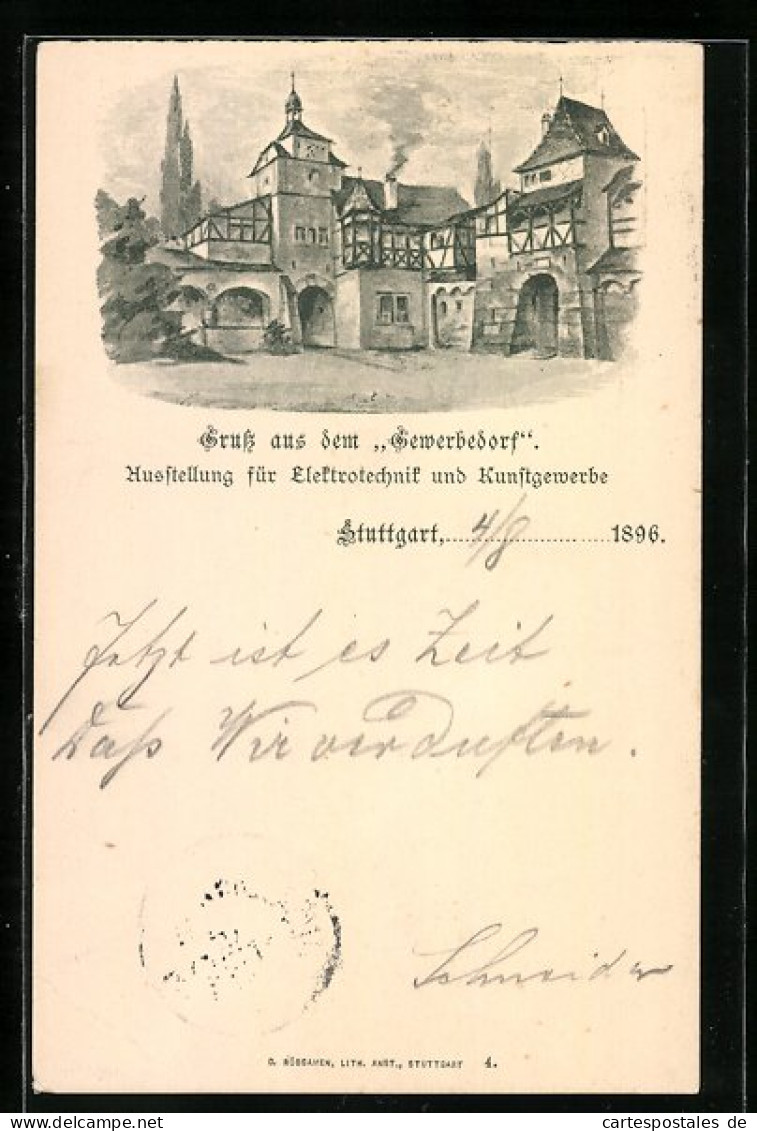 Gruß aus dem „Gewerbedorf“.
Ausstellung für Elektrotechnik und Kunstgewerbe
Stuttgart, 4/8 1896.
Jetzt ist es Zeit
daß Wir verduften.
Schneider
LITH. ANST., STUTTGART 4.
cartespostales de